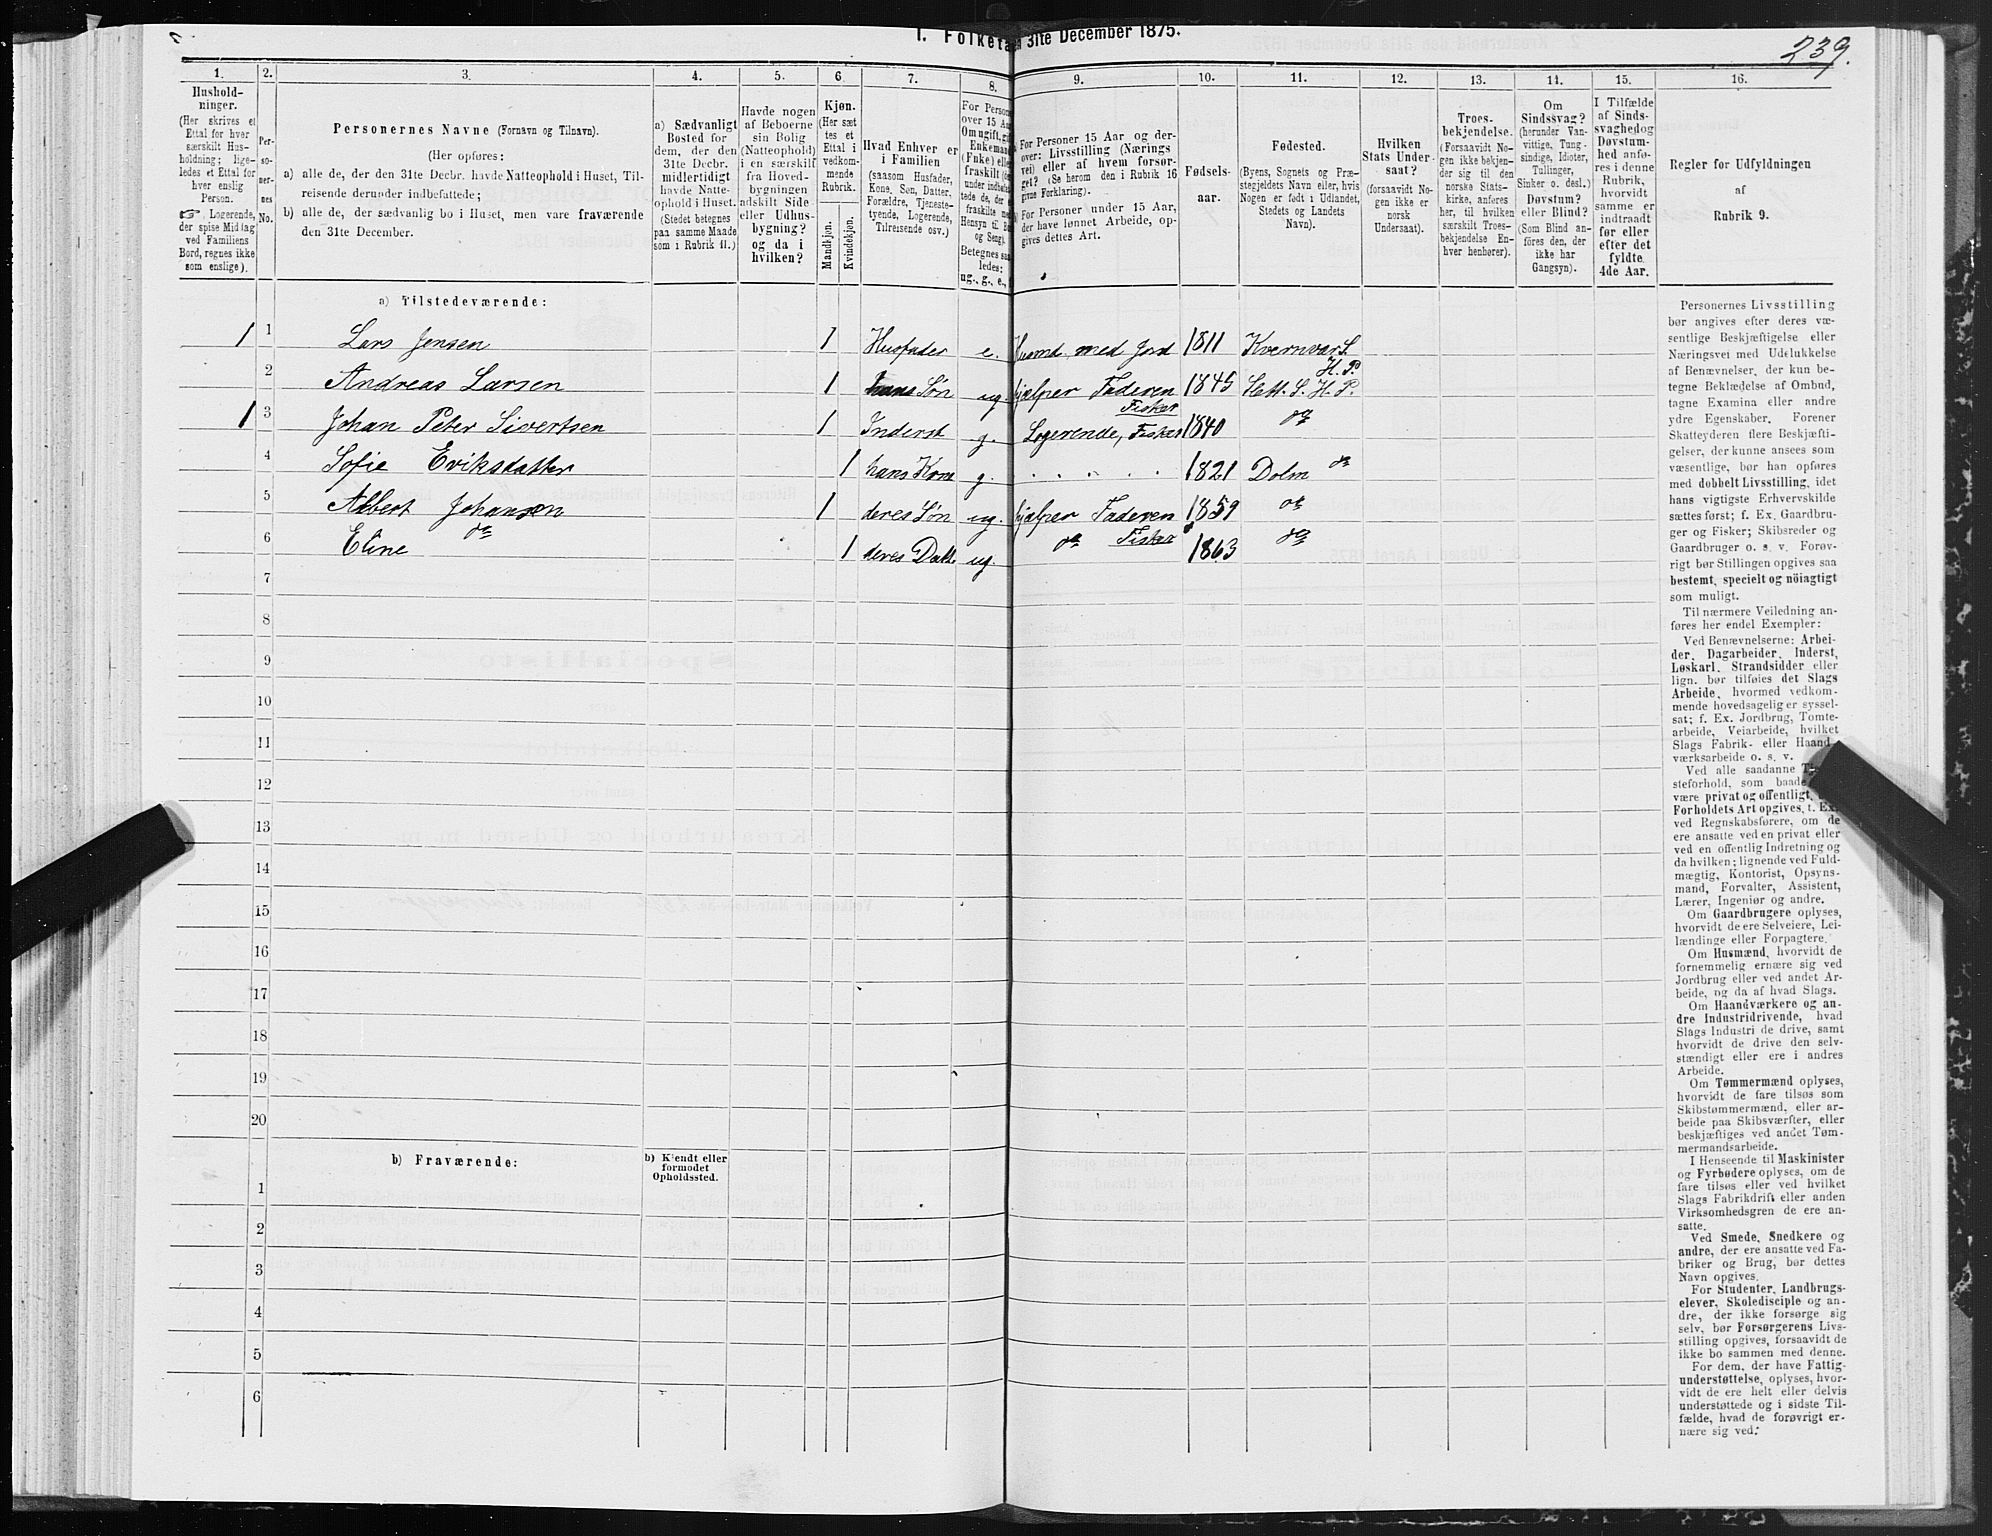 239.
1. Folketa 31te December 1875.
1. 2. 3. 4. 5. 6 7. 8. 9. 10. 11. 12. 13. 14. 15. 16.
Hushold-
ninger.
(Her skrives et
Ettal for hver
særskilt Hus-
holdning; lige-
ledes et Ettal for
hver enslig
Person.
☞ Logerende,
der spise Middag
ved Familiens
Bord, regnes ikke
som enslige).
Per-
so-
ner-
nes
No.
Personernes Navne (Fornavn og Tilnavn).
(Her opføres:
a) alle de, der den 31te Decbr. havde Natteophold i Huset, Til-
reisende derunder indbefattede;
b) alle de, der sædvanlig bo i Huset, men vare fraværende
den 31te December.
a) Sædvanligt
Bosted for
dem, der den
31te Decbr.
midlertidigt
havde Natte-
ophold i Huset.
(Stedet betegnes
paa samme Maade
som i Rubrik 11.)
Havde nogen
af Beboerne
sin Bolig
(Natteophold)
i en særskilt
fra Hoved-
bygningen
adskilt Side
eller Udhus-
bygning?
og da i
hvilken?
Kjøn.
(Her sæt
tes et
Ettal i
vedkom-
mende
Rubrik.
Mandkjøn.
Kvindekjøn.
Hvad Enhver er
i Familien
(saasom Husfader,
Kone, Søn, Datter,
Forældre, Tjeneste-
tyende, Logerende,
Tilreisende osv.)
For Person
over 15 Aa
Om ugift, gi
Enkemand
(Enke) elle
fraskilt
under indbe
tede de, de
fraskilte m
Hensyn til B
og Seng).
Betegnes saa
ledes:
ug., g., e.,
For Personer 15 Aar og der-
over: Livsstilling (Nærings
vei) eller af hvem forsør-
get? (Se herom den i Rubrik 16
givne Forklaring).
For Personer under 15 Aar,
der have lønnet Arbeide, op-
gives dettes Art.
Fødsels-
aar.
Fødested.
(Byens, Sognets og Præ-
stegjeldets Navn eller, hvis
Nogen er født i Udlandet,
Stedets og Landets
Navn).
Hvilken
Stats Under-
saat?
(forsaavidt No-
gen ikke er
norsk
Undersaat).
Troes-
bekjendelse.
(Forsaavidt No-
gen ikke bekjen-
der sig til den
norske Stats-
kirke, anføres
her, til hvilken
særskilt Troes-
bekjendelse En-
hver henhører).
Om
Sindssvag?
(herunder Van-
vittige, Tung-
sindige, Idioter,
Tullinger,
Sinker o. desl.)
Døvstum?
eller Blind?
(Som Blind an-
føres den, der
ikke har
Gangsyn).
I Tilfælde
af Sinds-
svaghed og
Døvstum-
hed anfø-
res i denne
Rubrik,
hvorvidt
samme er
indtraadt
før eller
efter det
fyldte
4de Aar.
Regler for Udfyldningen
af
Rubrik 9.
a) Tilstedeværende:
1 1 Lars Jensen 1 Husfader e. Husmd med Jord 1811 Kvernvær S. H. P.
2 Andreas Larsen 1 hans Søn ug. hjælper Faderen Fisker 1845 S. H. P.
1 3 Johan Peter Sivertsen 1 Inderst g. Logerende, Fisker 1840 do
4 Sofie Eriksdatter 1 hans Kone g. 1821 Dolm do
5 Albert Johansen 1 deres Søn ug. hjælper Faderen Fisker 1859 do
6 Eline do 1 deres Datt. ug. do 1863 do
7
8
9
10
11
12
13
14
15
16
17
18
19
20
b) Fraværende:
b) Kjendt eller
formodet
Opholdssted.
1
2
3
4
5
6
Personernes Livsstilling
bør angives efter deres væ-
sentlige Beskjæftigelse eller
Næringsvei med Udelukkelse
af Benævnelser, der kun be-
tegne Beklædelse af Ombud,
tagne Examina eller andre
ydre Egenskaber. Forener
Skatteyderen flere Beskjæfti-
gelser, der kunne ansees som
væsentlige, bør han opføres
med dobbelt Livsstilling, idet
hans vigtigste Erhvervskilde
sættes først; f. Ex. Gaardbru-
ger og Fisker; Skibsreder og
Gaardbruger o. s. v. Forøv-
rigt bør Stillingen opgives saa
bestemt, specielt og nöiagtigt
som muligt.
Til nærmere Veiledning an-
føres her endel Exempler:
Ved Benævnelserne: Arbei-
der, Dagarbeider, Inderst,
Løskarl, Strandsidder eller
lign. bør tilføies det Slags
Arbeide, hvormed vedkom-
mende hovedsagelig er syssel-
sat; f. Ex. Jordbrug, Tomte-
arbeide, Veiarbeide, hvilket
Slags Fabrik- eller Haand-
værksarbeide o. s. v.
Ved alle saadanne
steforhold, som baade
være privat og offentligt,
Forholdets Art opgives, t. Ex.
ved Regnskabsførere, om de
ere ansatte ved en privat eller
ved en offentlig Indretning og
da hvilken; lignende ved Fuld-
mægtig, Kontorist, Opsyns-
mand, Forvalter, Assistent,
Lærer, Ingeniør og andre.
Om Gaardbrugere oplyses,
hvorvidt de ere Selveiere, Lei-
lændinge eller Forpagtere.
Om Husmænd, hvorvidt de
fornemmelig ernære sig ved
Jordbrug eller ved andet Ar-
beide, og da af hvad Slags.
Om Haandværkere og an-
dre Industridrivende, hvad
Slags Industri de drive, samt
hvorvidt de drive den selv-
stændigt eller ere i andres
Arbeide.
Om Tømmermænd oplyses,
hvorvidt de fare tilsøs som
Skibstømmermænd, eller ar-
beide paa Skibsværfter, eller
beskjæftiges ved andet Tøm-
mermandsarbeide.
I Henseende til Maskinister
og Fyrbødere oplyses, om de
fare tilsøs eller ved hvilket
Slags Fabrikdrift eller anden
Virksomhedsgren de ere an-
satte.
Ved Smede, Snedkere og
andre, der ere ansatte ved Fa-
briker og Brug, bør dettes
Navn opgives.
For Studenter, Landbrugs-
elever, Skoledisciple og an-
dre, der ikke forsørge sig
selv, bør Forsørgerens Livs-
stilling opgives, forsaavidt de
ikke bo sammen med denne.
For dem, der have Fattig-
understøttelse, oplyses, hvor-
vidt de ere helt eller delvis
understøttede og i sidste Til-
fælde, hvad de forøvrigt er-
nære sig ved.